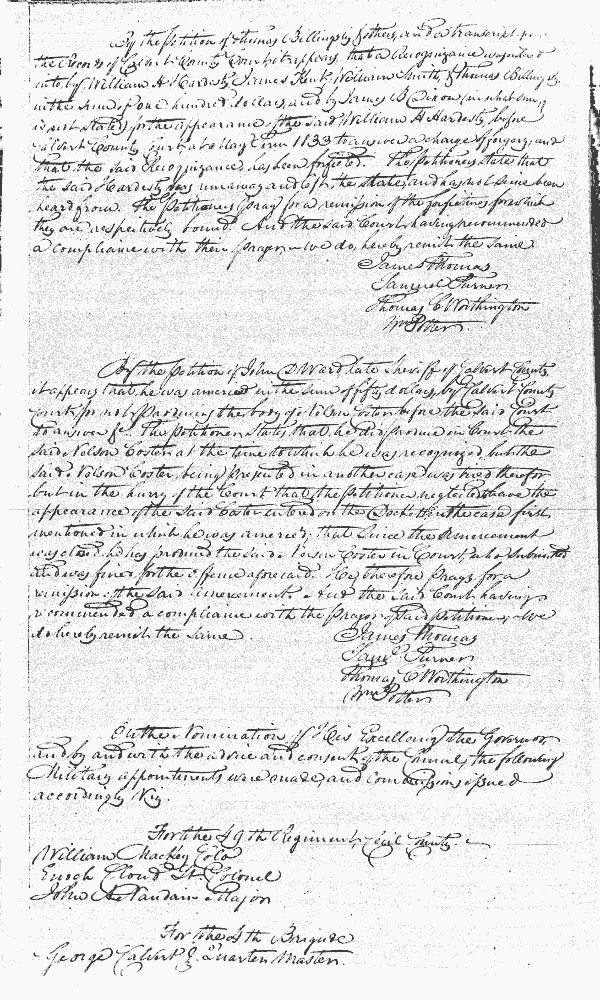 By the Petition of Thomas Billingsly & others, and a transcript
the Records of Calvert County Court it appears, that a Recognizance was entered
into by William H. Hardesty James Hunt William Smith, & Thomas Billingsly
in the sum of one hundred dollars, and by James B Dixon (in what sum
is not stated) for the appearance of the said William H Hardesty before
Calvert County Court at May Term 1833 to answer a charge of forgery, and
that the said Recognizance has been forfeited. The Petitioners state that
the said Hardesty has runaway and left the State, and has not since been
heard from. The Petitioners pray for a remission of the forfeitures for which
they are respectively bound. And the said Court having recommended
a compliance with their Prayer — we do, hereby remit the same
James Thomas
Samuel Turner
Thomas C Worthington
Wm Potter
By the Petition of John D Ward late Sheriff of Calvert County
it appears that he was amerced in the sum of fifty dollars, by Calvert County
Court for not Producing the body of Nelson Coster before the said Court
to answer &c. The Petitioner States, that he did produce in Court the
said Nelson Coster at the time to which he was recognized, but the
said Nelson Coster, being presented in another case was tried therefor
but in the hurry of the Court that the Petitioner neglected to have the
appearance of the said Coster entered on the Docket in the case first
mentioned in which he was amerced, that Since the Amercement
was entered he has produced the said Nelson Coster in Court who submitted
and was fined for the offence aforesaid. He therefore Prays for a
remission of the said amercement. And the Said Court having
recommended a compliance with the Prayer of Said Petitioner, We
do hereby remit the same
James Thomas
Saml. Turner
Thomas C Worthington
Wm Potter
On the Nomination of His Excellency the Governor
and by and with the advice and consent of the Council, the following
Military appointments were made, and Commissions issued
accordingly Viz.
For the 49th Regiment Cecil County
William Mackey Colo
Enoch Cloud Lt. Colonel
John Major
For the 4th Brigade
George Calvert Quarter Master